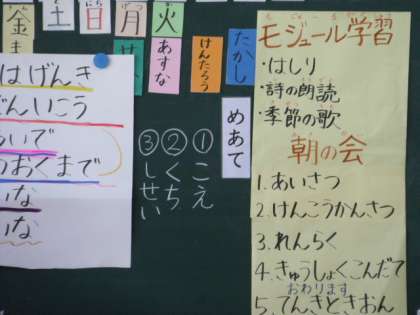 モジュール学習
・はしり
・詩の朗読
・季節の歌
朝の会
1.あいさつ
2.けんこうかんさつ
3.れんらく
4.きゅうしょくこんだて
おわります
5.てんきときおん
たかし
けんたろう
火
あすな
月
日
土
金
めあて
①こえ
②くち
③しせい
はげんき
いこう
いで
おくまで
いな
いな